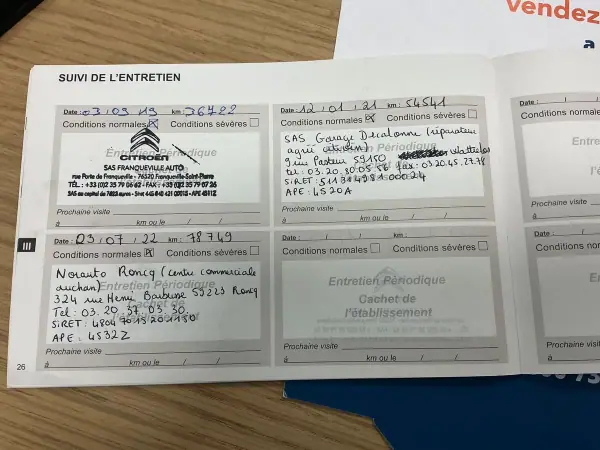 vendez
a
SUIVI DE L'ENTRETIEN
Date : 03 / 09 / 19 km : 36722
Conditions normales Conditions sévères
Entretien Périodique
CITROËN
SAS FRANQUEVILLE AUTO
rue Porte de Franqueville - 76520 Franqueville-Saint-Pierre
TÉL. : +33 (0)2 35 79 06 62 - FAX : +33 (0)2 35 79 07 26
Prochaine visite
à km ou le / /
Date : 12 / 01 / 21 km : 54541
Conditions normales Conditions sévères
SAS Garage Decalonne (réparateur
agréé citroën)
9 rue Pasteur 59150 Wattrelos
tel : 03.20.30.05.56 fax : 03.20.45.27.78
SIRET : 00024
APE : 4520A
Prochaine visite
à km ou le / /
Date : / /
Conditions normales
Prochaine visite
à
III
Date : 03 / 07 / 22 km : 78749
Conditions normales Conditions sévères
Norauto Roncq (centre commerciale
auchan) Entretien Périodique
324 rue Henri Barbusse 59223 Roncq
Cachet de
Tel : 03. 20. 37. 03. 30.
l'établissement
SIRET :
APE : 4532Z
Prochaine visite
à km ou le / /
Date : / / km :
Conditions normales Conditions sévères
Entretien Périodique
Cachet de
l'établissement
Prochaine visite
à km ou le / /
Date : / /
Conditions nor
Prochaine visite
à
26